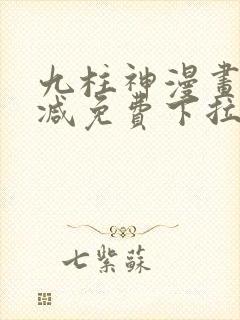 九柱神漫畫
減免費下拉
七紫蘇